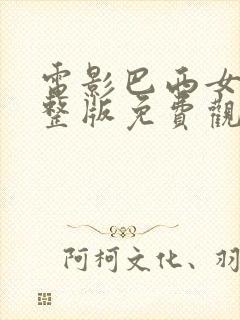 電影巴西女
整版免費觀
阿柯文化、羽